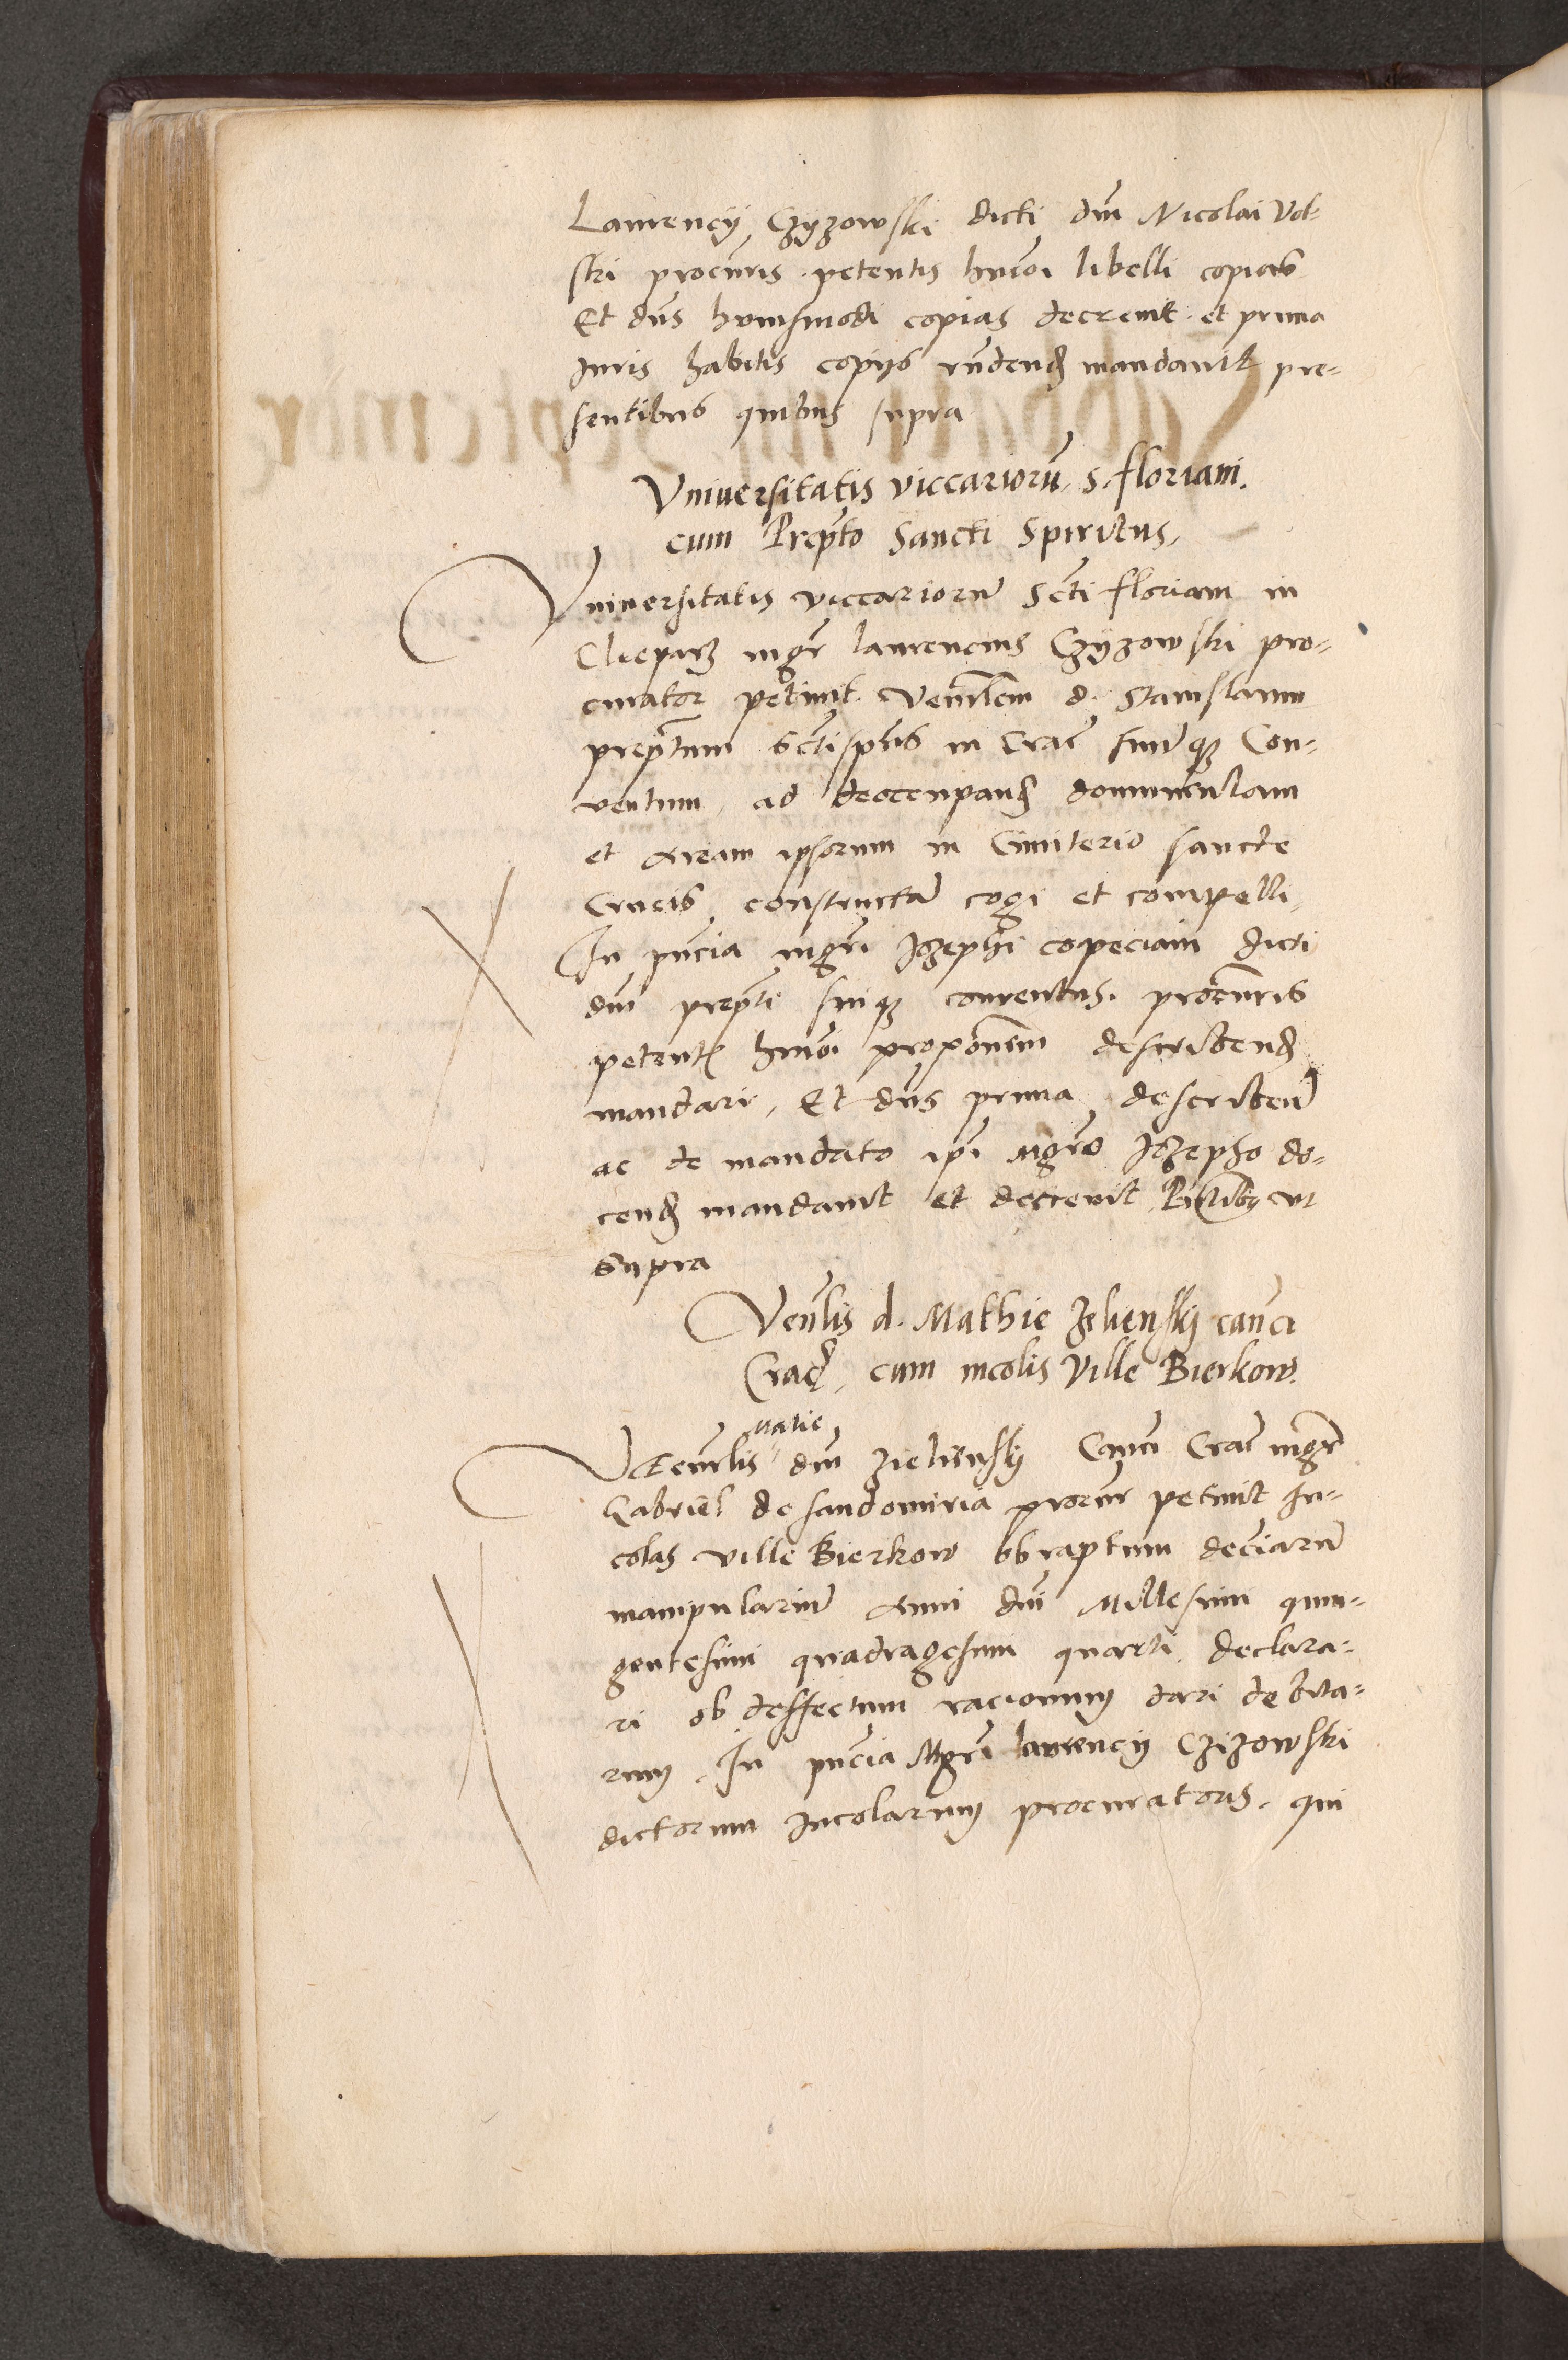 Laurencÿ Czÿzowski dicti dni Nicolai Vol-
ski procuris petentis hmoi libelli copias
Et dns huiusmodi copias decrevit et prima
Iuris habitis copijs rndend mandavit pre-
sentibus quibus supra
Universitatis viccarioru. S. floriani.
cum Prepto Sancti Spiritus,
Universitatis viccariorum Scti floriani in
Clieparz mgr laurencius Czÿzowski pro-
curator petiuit. Venerlem d. Stanislaum
preptum Sctispus in Crac suumq Con-
ventum, ad deoccupand domunculam
et Aream ipsorum in Cimiterio sancte
Crucis constructam cogi et compelli,
In pncia mgri Iozephi copeciam dicti
dni prepti suiq conventus. procuris
petent hmoi proponem describend
mandari, Et dns prima describend
ac de mandato ipi Mgro Iozepho do-
cend mandavit et decrevit. Pntibus ut
Supra
Venlis d. Mathie Zelienskÿ canci
Crac, cum incolis Ville Bierkow.
Matie
Venerlis dni Zielienskÿ Canci Crac mgr
Gabriel de sandomiria procur petiuit In-
colas ville Bierkow ob raptum deciarum
manipularium Anni dni Millesimi quin-
gentesimi quadragesimi quarti declara-
ri ob deffectum racionum dari debita-
rum. In pncia Mgri laurencÿ Czizowski
dictorum Incolarum procuratoris, qui